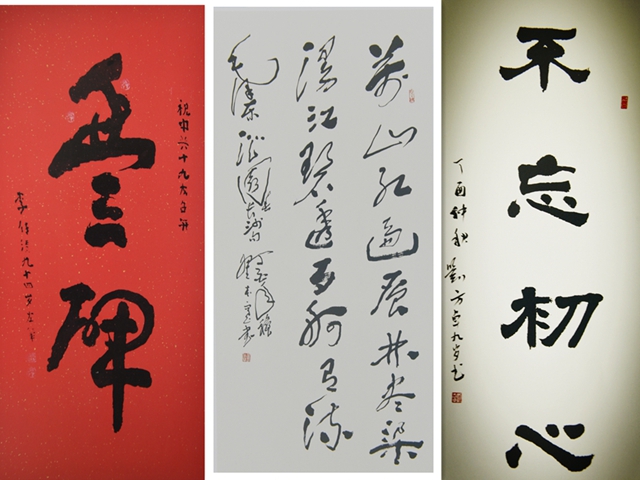 祝中共十九大召开
豐碑
九十四岁
萬山红遍层林尽染
漫江碧透百舸争流
毛泽东沁园春长沙句
不忘初心
丁酉仲秋劉方